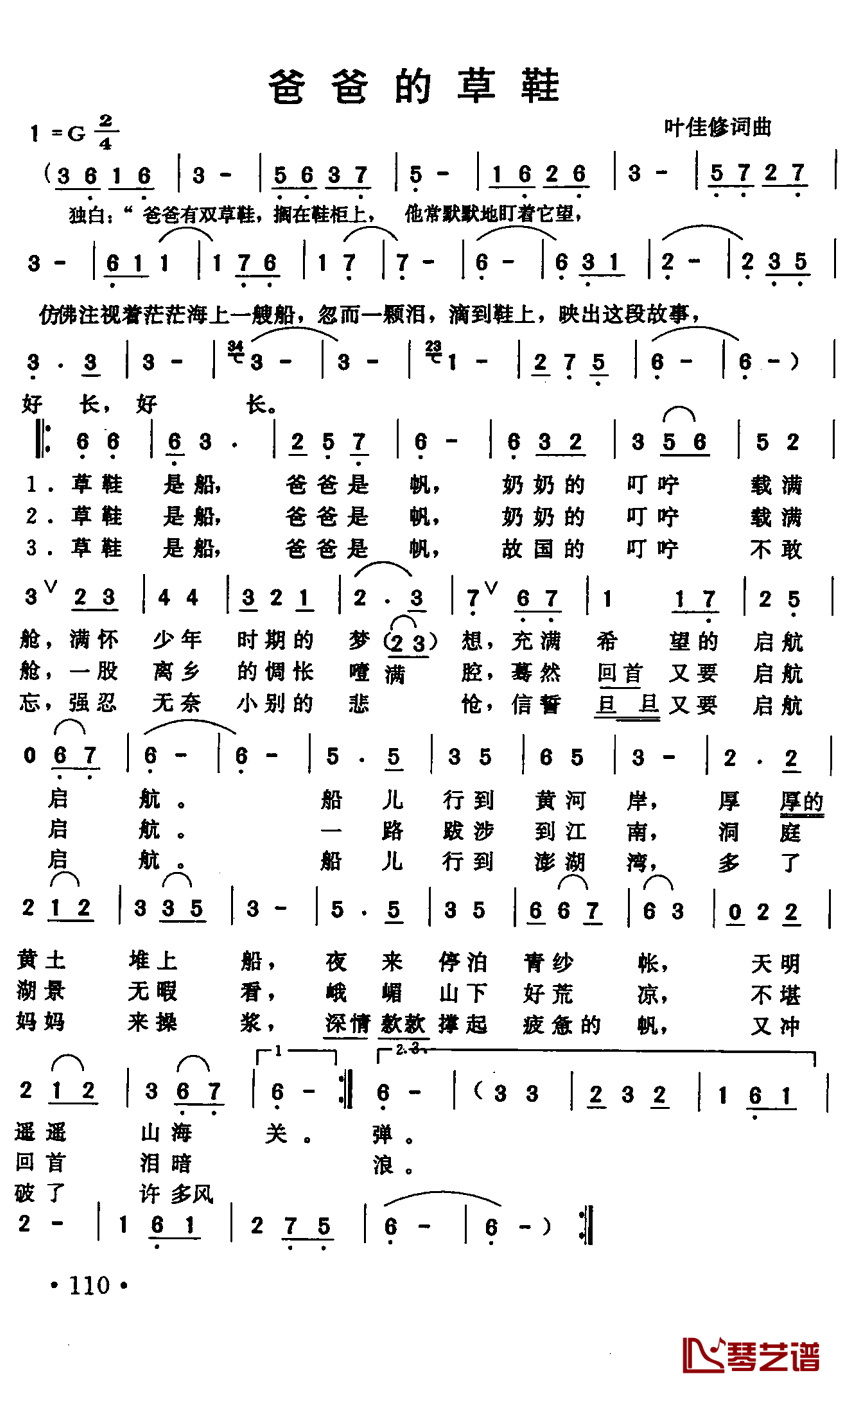 爸爸的草鞋
1=G 2/4
叶佳修词曲
(3 6 1 6 | 3 - | 5 6 3 7 | 5 - | 1 6 2 6 | 3 - | 5 7 2 7 |
独白:“爸爸有双草鞋,搁在鞋柜上, 他常默默地盯着它望,
3 - | 6 1 1 | 1 7 6 | 1 7 | 7 - | 6 - | 6 3 1 | 2 - | 2 3 5 |
仿佛注视着茫茫海上一艘船,忽而一颗泪,滴到鞋上,映出这段故事,
3 . 3 | 3 - | 34 3 - | 3 - | 23 1 - | 2 7 5 | 6 - | 6 - ) |
好 长,好 长。
|: 6 6 | 6 3 . | 2 5 7 | 6 - | 6 3 2 | 3 5 6 | 5 2 |
1.草鞋 是船, 爸爸是 帆, 奶奶的 叮咛 载满
2.草鞋 是船, 爸爸是 帆, 奶奶的 叮咛 载满
3.草鞋 是船, 爸爸是 帆, 故国的 叮咛 不敢
3 ∨ 2 3 | 4 4 | 3 2 1 | 2 . 3 | 7 ∨ 6 7 | 1 1 7 | 2 5 |
舱,满怀 少年 时期的 梦(2 3) 想,充满 希 望的 启航
舱,一股 离乡 的惆怅 噎满 腔,蓦然 回首 又要 启航
忘,强忍 无奈 小别的 悲 怆,信誓 旦旦 又要 启航
0 6 7 | 6 - | 6 - | 5 . 5 | 3 5 | 6 5 | 3 - | 2 . 2 |
启 航。 船 儿 行到 黄河 岸, 厚 厚的
启 航。 一 路 跋涉 到江 南, 洞 庭
启 航。 船 儿 行到 澎湖 湾, 多 了
2 1 2 | 3 3 5 | 3 - | 5 . 5 | 3 5 | 6 6 7 | 6 3 | 0 2 2 |
黄土 堆上 船, 夜 来 停泊 青纱 帐, 天明
湖景 无暇 看, 峨 嵋 山下 好荒 凉, 不堪
妈妈 来操 浆, 深情 款款 撑起 疲惫的 帆, 又冲
1 2.3.
2 1 2 | 3 6 7 | 6 - :| 6 - | ( 3 3 | 2 3 2 | 1 6 1 |
遥遥 山海 关。 弹。
回首 泪暗 浪。
破了 许多风
2 - | 1 6 1 | 2 7 5 | 6 - | 6 - ) :|
·110·
琴艺谱